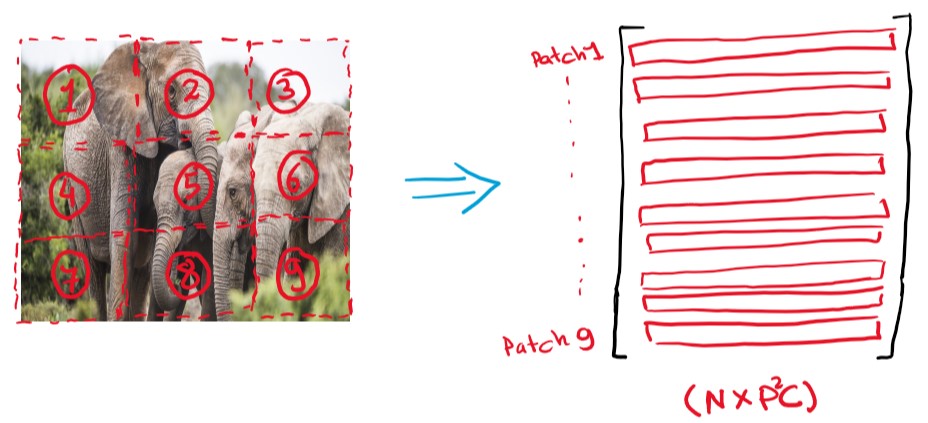 1 2 3
4 5 6
7 8 9
Patch 1
Patch 9
(N x P²C)